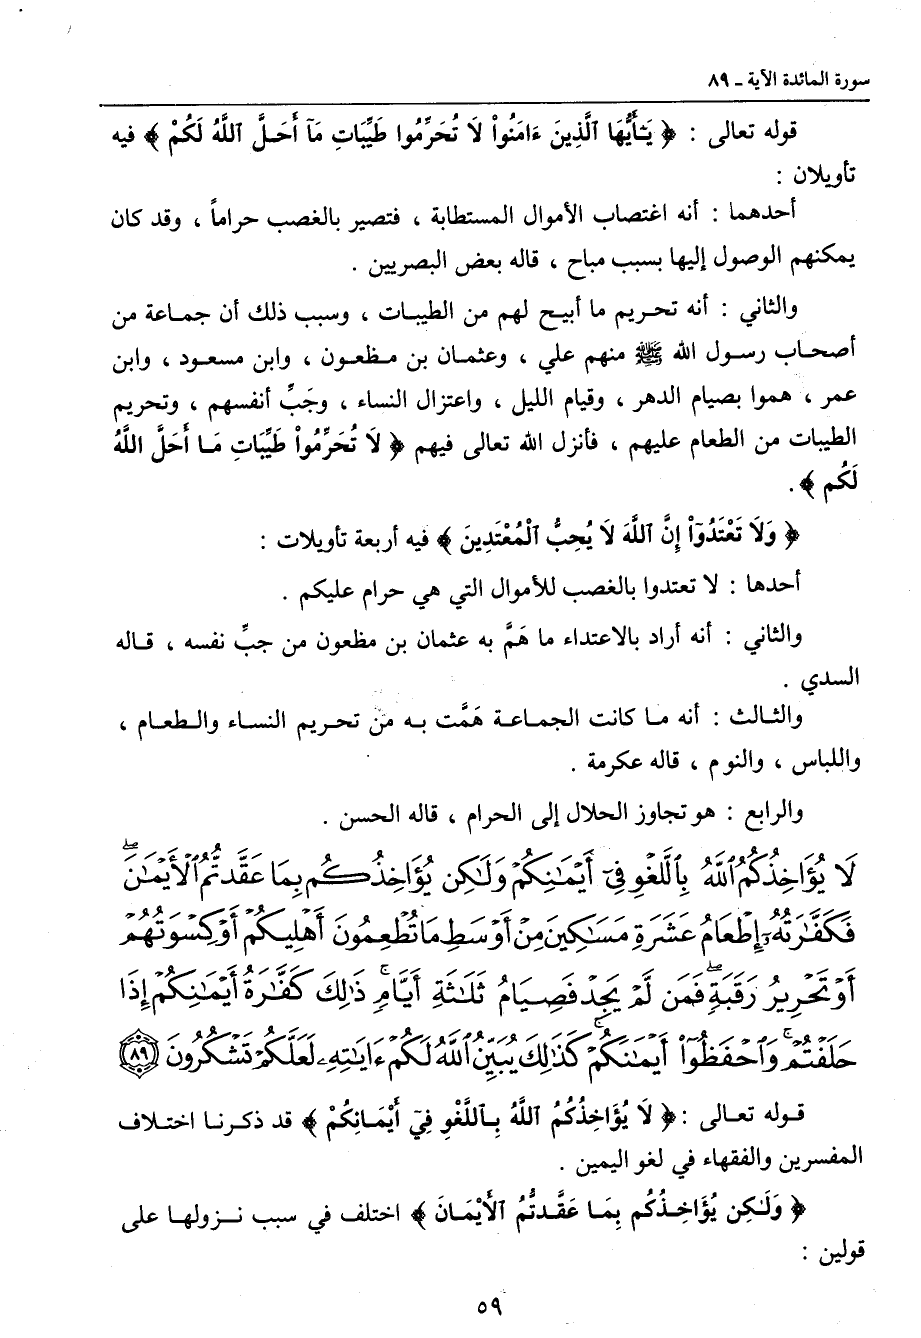 سورة المائدة الآية ـ ٨٩
قوله تعالى : ﴿ يَـٰٓأَيُّهَا ٱلَّذِينَ ءَامَنُواْ لَا تُحَرِّمُوا طَيِّبَاتِ مَآ أَحَـلَّ ٱللَّهُ لَكُمْ ﴾ فيه
تأويلان :
أحدهما : أنه اغتصاب الأموال المستطابة ، فتصير بالغصب حراماً ، وقد كان
يمكنهم الوصول إليها بسبب مباح ، قاله بعض البصريين .
والثاني : أنه تحريم ما أبيح لهم من الطيبات ، وسبب ذلك أن جماعة من
أصحاب رسول الله ﷺ منهم علي ، وعثمان بن مظعون ، وابن مسعود ، وابن
عمر ، هموا بصيام الدهر ، وقيام الليل ، واعتزال النساء ، وجَبِّ أنفسهم ، وتحريم
الطيبات من الطعام عليهم ، فأنزل الله تعالى فيهم ﴿ لَا تُحَرِّمُواْ طَيِّبَاتِ مَا أَحَلَّ اللَّهُ
لَكُم ﴾ .
﴿ وَلَا تَعْتَدُوٓاْ إِنَّ ٱللَّهَ لَا يُحِبُّ ٱلْمُعْتَدِينَ ﴾ فيه أربعة تأويلات :
أحدها : لا تعتدوا بالغصب للأموال التي هي حرام عليكم .
والثاني : أنه أراد بالاعتداء ما هَمَّ به عثمان بن مظعون من جبِّ نفسه ، قاله
السدي .
والثالث : أنه ما كانت الجماعة هَمَّت به من تحريم النساء والطعام ،
واللباس ، والنوم ، قاله عكرمة .
والرابع : هو تجاوز الحلال إلى الحرام ، قاله الحسن .
لَا يُؤَاخِذُكُمُ ٱللَّهُ بِٱللَّغْوِ فِىٓ أَيْمَـٰنِكُمْ وَلَـٰكِن يُؤَاخِذُكُم بِمَا عَقَّدتُّمُ ٱلْأَيْمَـٰنَ ۖ
فَكَفَّـٰرَتُهُۥٓ إِطْعَامُ عَشَرَةِ مَسَـٰكِينَ مِنْ أَوْسَطِ مَا تُطْعِمُونَ أَهْلِيكُمْ أَوْ كِسْوَتُهُمْ
أَوْ تَحْرِيرُ رَقَبَةٍ ۖ فَمَن لَّمْ يَجِدْ فَصِيَامُ ثَلَـٰثَةِ أَيَّامٍ ۚ ذَٰلِكَ كَفَّـٰرَةُ أَيْمَـٰنِكُمْ إِذَا
حَلَفْتُمْ ۚ وَٱحْفَظُوٓاْ أَيْمَـٰنَكُمْ ۚ كَذَٰلِكَ يُبَيِّنُ ٱللَّهُ لَكُمْ ءَايَـٰتِهِۦ لَعَلَّكُمْ تَشْكُرُونَ ٨٩
قوله تعالى : ﴿ لَا يُؤَاخِذُكُمُ ٱللَّهُ بِٱللَّغْوِ فِيٓ أَيْمَـانِكُمْ ﴾ قد ذكرنا اختلاف
المفسرين والفقهاء في لغو اليمين .
﴿ وَلَـٰكِن يُؤَاخِذُكُم بِمَا عَقَّدتُّمُ ٱلْأَيْمَانَ ﴾ اختلف في سبب نزولها على
قولين :
٥٩